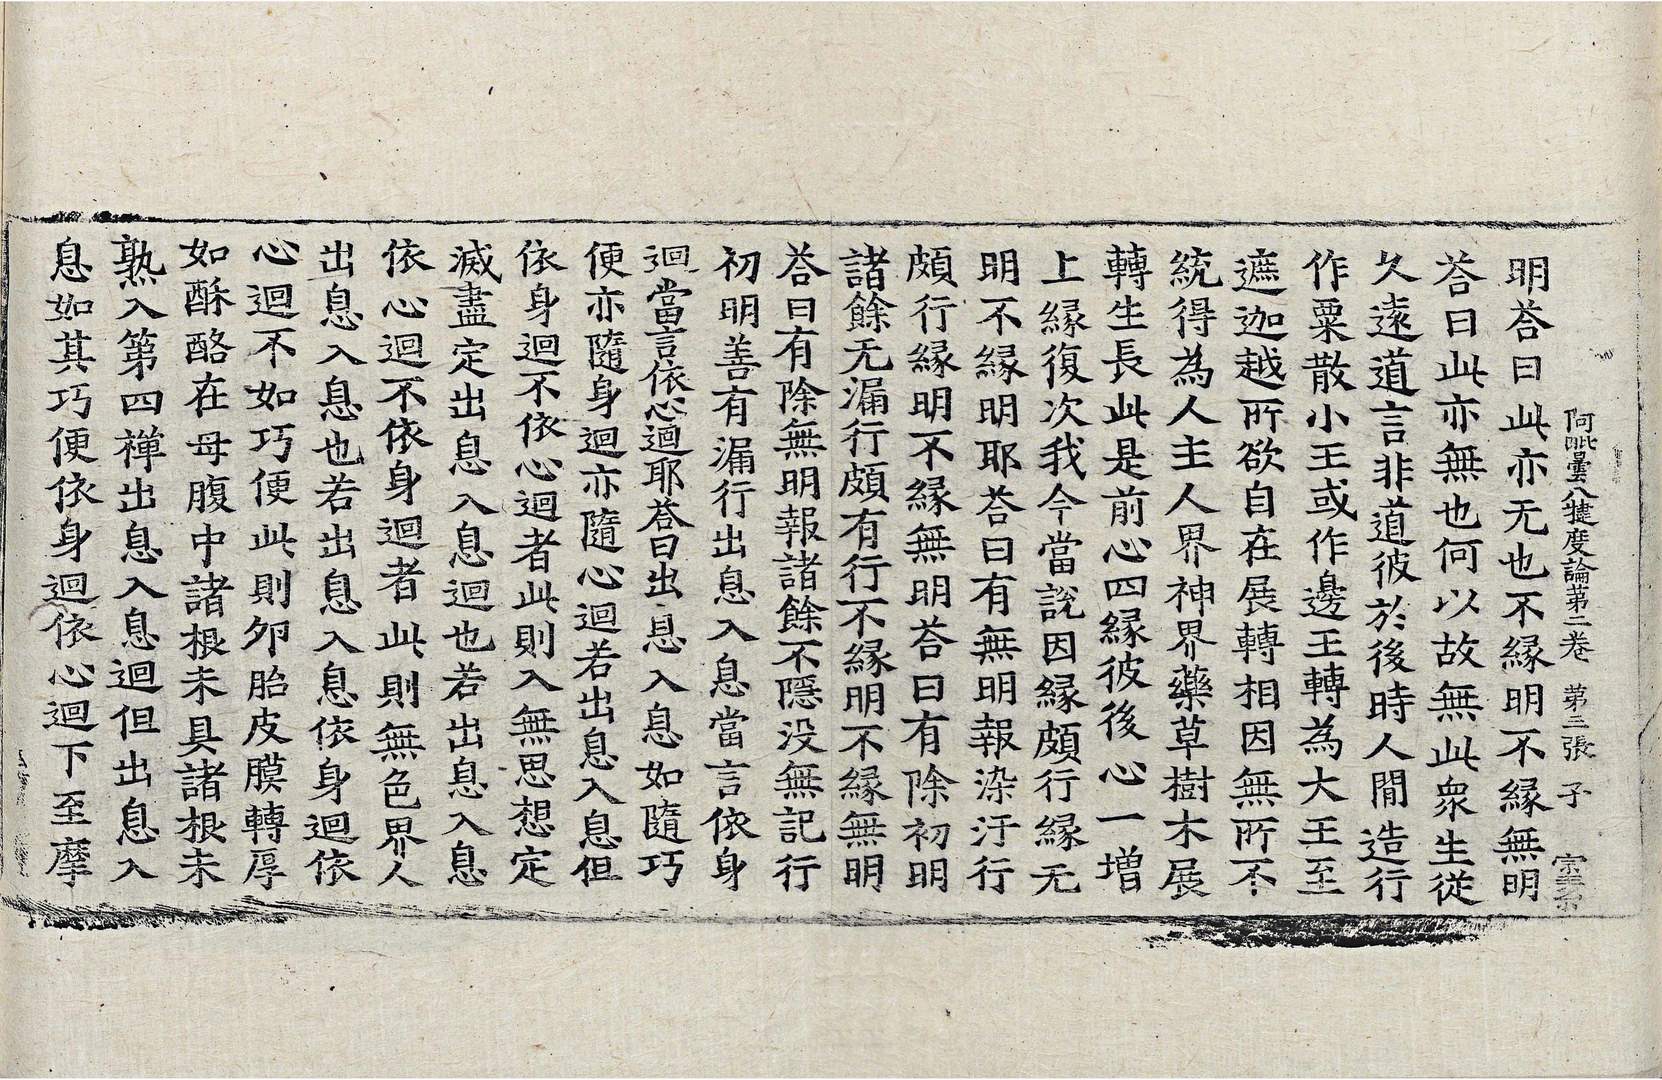 阿毗曇八犍度論第二卷　第三張　子
明荅曰此亦无也不縁明不縁無明
荅曰此亦無也何以故無此衆生從
久遠道言非道彼於後時人閒造行
作粟散小王或作邊王轉為大王至
遮迦越所欲自在展轉相因無所不
統得為人主人界神界藥草樹木展
轉生長此是前心四縁彼後心一增
上縁復次我今當説因縁頗行縁无
明不縁明耶荅曰有無明報染汙行
頗行縁明不縁無明荅曰有除初明
諸餘无漏行頗有行不縁明不縁無明
荅曰有除無明報諸餘不隱没無記行
初明善有漏行出息入息當言依身
迴當言依心迴耶荅曰出息入息如隨巧
便亦隨身迴亦隨心迴若出息入息但
依身迴不依心迴者此則入無思想定
滅盡定出息入息迴也若出息入息
依心迴不依身迴者此則無色界人
出息入息也若出息入息依身迴依
心迴不如巧便此則夘胎皮膜轉厚
如酥酪在母腹中諸根未具諸根未
熟入第四禪出息入息迴但出息入
息如其巧便依身迴依心迴下至摩